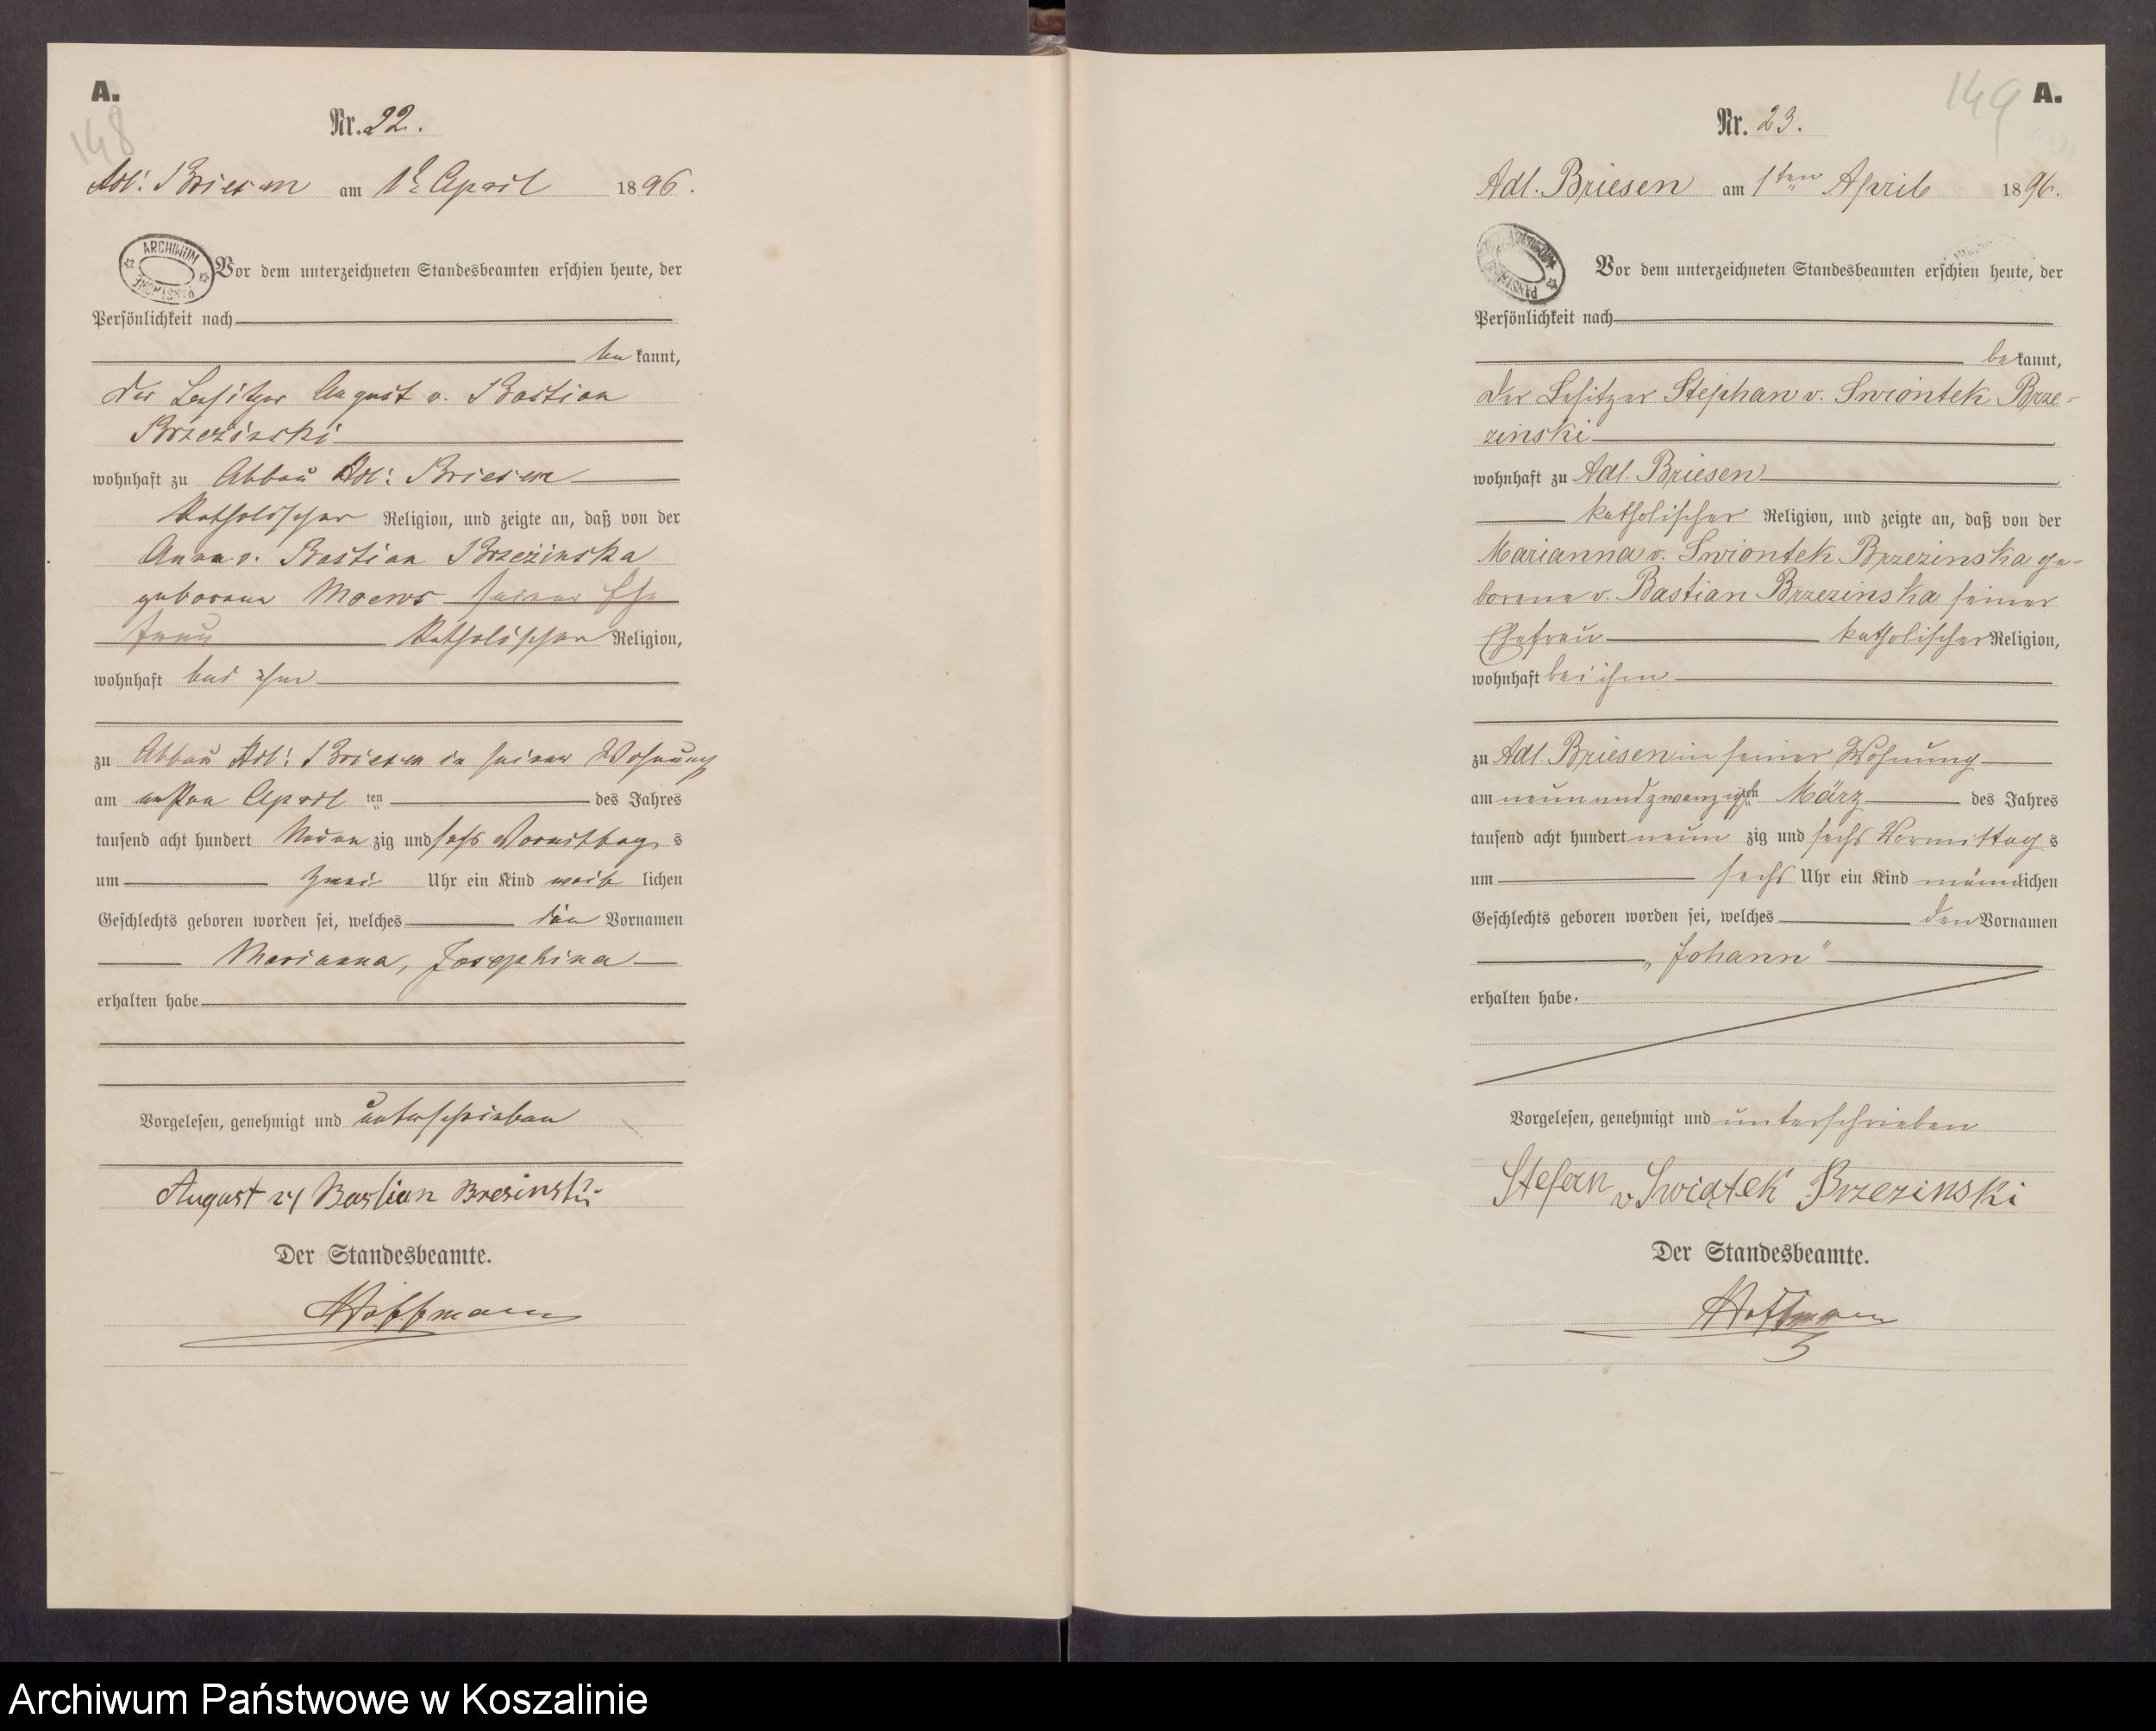 A.
148
Nr. 22.
Adl: Briesen am 1t April 1896.
ARCHIWUM
PAŃSTWOWE
Vor dem unterzeichneten Standesbeamten erschien heute, der
Persönlichkeit nach
be kannt,
der Besitzer August v. Bastian
Brzezinski
wohnhaft zu Abbau Adl: Briesen
katholischer Religion, und zeigte an, daß von der
Anna v. Bastian Brzezinska
geborene Moews seiner Ehe
frau katholischer Religion,
wohnhaft bei ihm
zu Abbau Adl: Briesen in seiner Wohnung
am ersten April ten des Jahres
tausend acht hundert Neun zig und sechs Vormittag s
um zwei Uhr ein Kind weib lichen
Geschlechts geboren worden sei, welches die Vornamen
Marianna, Josephina
erhalten habe
Vorgelesen, genehmigt und unterschrieben
August v Bastian Bresinski
Der Standesbeamte.
Hoffmann
149 A.
Nr. 23.
Adl. Briesen am 1ten April 1896.
Vor dem unterzeichneten Standesbeamten erschien heute, der
Persönlichkeit nach
be kannt,
der Besitzer Stephan v. Swiontek Brze=
zinski
wohnhaft zu Adl. Briesen
katholischer Religion, und zeigte an, daß von der
Marianna v. Swiontek Brzezinska ge=
borene v. Bastian Brzezinska seiner
Ehefrau katholischer Religion,
wohnhaft bei ihm
zu Adl. Briesen in seiner Wohnung
am neunundzwanzigsten März des Jahres
tausend acht hundert neun zig und sechs Vormittag s
um sechs Uhr ein Kind männlichen
Geschlechts geboren worden sei, welches den Vornamen
„Johann"
erhalten habe.
Vorgelesen, genehmigt und unterschrieben
Stefan v Swiątek Brzezinski
Der Standesbeamte.
Hoffmann
Archiwum Państwowe w Koszalinie